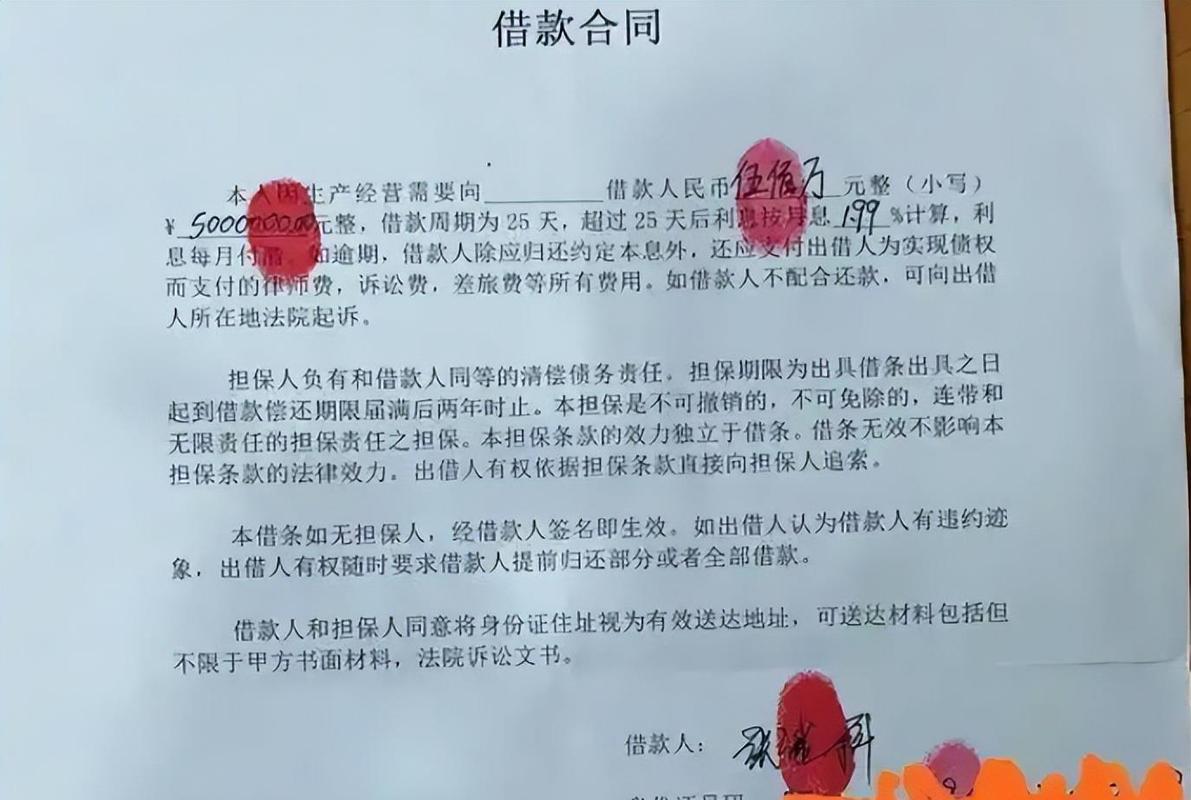 借款合同
本人因生产经营需要向________借款人民币伍佰万元整（小写）
￥5000000.00元整，借款周期为25天，超过25天后利息按月息1.99%计算，利
息每月付清。如逾期，借款人除应归还约定本息外，还应支付出借人为实现债权
而支付的律师费，诉讼费，差旅费等所有费用。如借款人不配合还款，可向出借
人所在地法院起诉。
担保人负有和借款人同等的清偿债务责任。担保期限为出具借条出具之日
起到借款偿还期限届满后两年时止。本担保是不可撤销的，不可免除的，连带和
无限责任的担保责任之担保。本担保条款的效力独立于借条。借条无效不影响本
担保条款的法律效力。出借人有权依据担保条款直接向担保人追索。
本借条如无担保人，经借款人签名即生效。如出借人认为借款人有违约迹
象，出借人有权随时要求借款人提前归还部分或者全部借款。
借款人和担保人同意将身份证住址视为有效送达地址，可送达材料包括但
不限于甲方书面材料，法院诉讼文书。
借款人：张继科